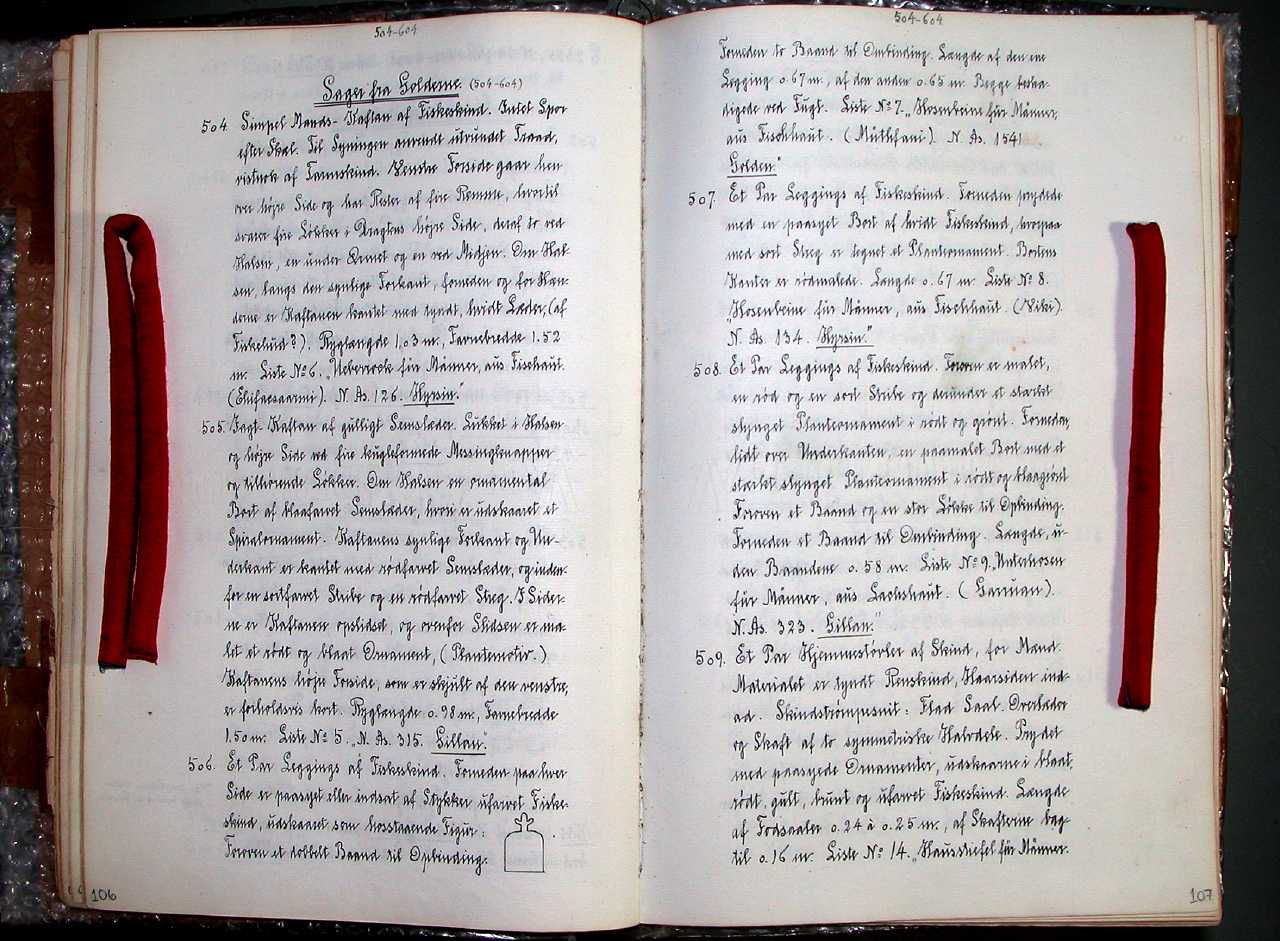 504-604
Sager fra Golderne. (504-604)
504. Simpel Mands-Kaftan af Fiskeskind. Intet Spor
efter Skæl. Til Syningen anvendt utvundet Traad,
vistnok af Tarmskind. Venstre Forside gaar hen
over højre Side og har Rester af fire Remme, hvortil
svarer fire Løkker i Dragtens højre Side, deraf to ved
Halsen, en under Ærmet og en ved Midjen. Om Hal-
sen, langs den synlige Forkant, forneden og for Hæn-
derne er Kaftanen kantet med tyndt, hvidt Læder, (af
Fiskehud?). Ryglængde 1,03 m., Favnebredde 1.52
m. Liste No 6. „Ueberrock für Männer, aus Fischaut.
N. As. 126. Hyrsin."
505. Jagt-Kaftan af gulligt Semslæder. Lukket i Halsen
og højre Side ved fire kugleformede Messingknapper
og tilhørende Løkker. Om Halsen en ornamental
Bort af blaafarvet Semslæder, hvori er udskaaret et
Spiralornament. Kaftanens synlige Forkant og Un-
derkant er kantet med rødfarvet Semslæder, og inden-
for en sortfarvet Stribe og en rødfarvet Streg. I Sider-
ne er Kaftanen opslidset, og ovenfor Slidsen er ma-
let et rødt og blaat Ornament, (Plantemotiv.)
Kaftanens højre Forside, som er skjult af den venstre,
er forholdsvis kort. Ryglængde 0.98 m., Favnebredde
1.50 m. Liste No 5. „N. As. 315. Lillan."
506. Et Par Leggings af Fiskeskind. Forneden paa hver
Side er paasyet eller indsat af Stykker ufarvet Fiske-
skind, udskaaret som hosstaaende Figur:
Foroven et dobbelt Baand til Opbinding.
106
504-604
Forneden to Baand til Ombinding. Længde af den ene
Legging 0.67 m., af den anden 0.65 m. Begge beska-
digede ved Fugt. Liste No 7. „Hosenbeine für Männer,
aus Fischhaut. N. As. 154.
Golden."
507. Et Par Leggings af Fiskeskind. Forneden prydede
med en paasyet Bort af hvidt Fiskeskind, hvorpaa
med sort Streg er tegnet et Planteornament. Bortens
Kanter er rødmalede. Længde 0.67 m. Liste No 8.
„Hosenbeine für Männer, aus Fischhaut. (Xiki).
N. As. 134. Hyrsin."
508. Et Par Leggings af Fiskeskind. Foroven er malet,
en rød og en sort Stribe og derunder et stærkt
slynget Planteornament i rødt og grønt. Forneden,
lidt over Underkanten, en paamalet Bort med et
stærkt slynget Planteornament i rødt og blaagrønt
Foroven et Baand og en stor Løkke til Opbinding.
Forneden et Baand til Ombinding. Længde, u-
den Baandene 0.58 m. Liste No 9. „Unterhosen
für Männer, aus Lachshaut. (Garuan).
N. As. 323. Lillan."
509. Et Par Hjemmestøvler af Skind, for Mænd.
Materialet er tyndt Renskind, Haarsiden ind-
ad. Skindstrømpesnit: Flad Saal. Overlæder
og Skaft af to symmetriske Halvdele. Prydet
med paasyede Ornamenter, udskaarne i blaat,
rødt, gult, brunt og ufarvet Fiskeskind. Længde
af Fodsaaler 0.24 à 0.25 m., af Skafterne bag-
til 0.16 m. Liste No 14. „Hausstiefel für Männer.
107